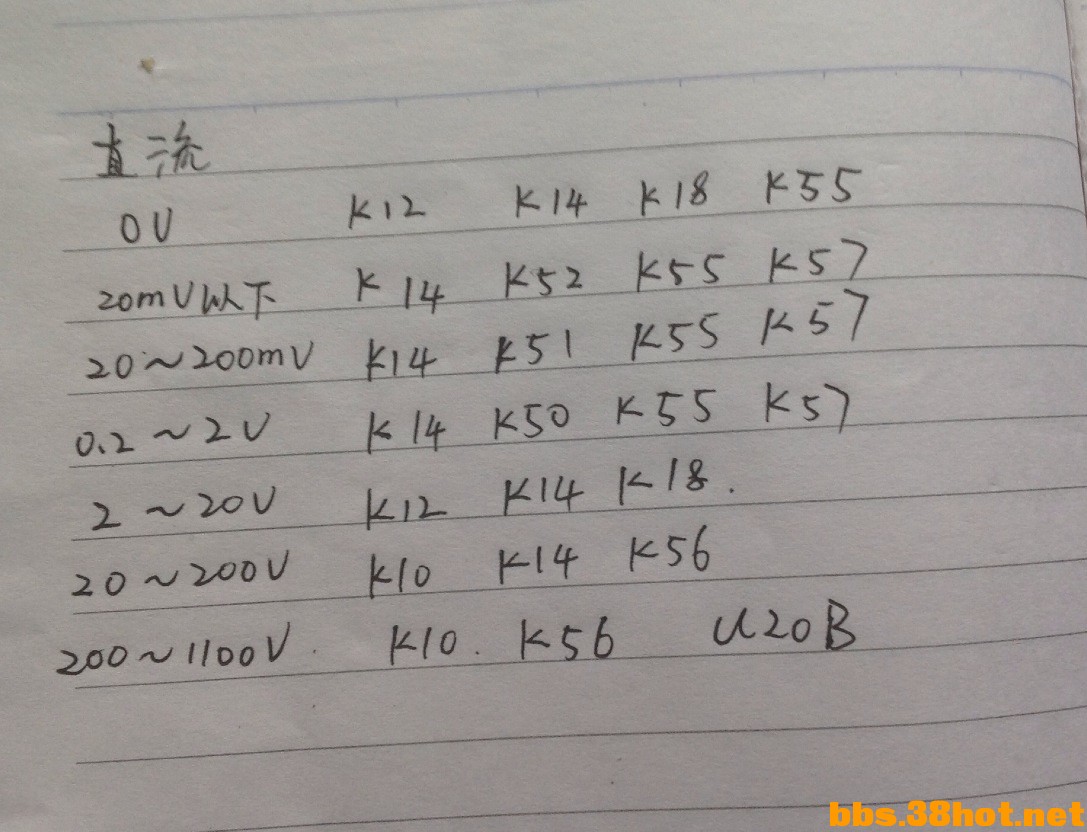 直流
0V K12 K14 K18 K55
20mV以下 K14 K52 K55 K57
20~200mV K14 K51 K55 K57
0.2~2V K14 K50 K55 K57
2~20V K12 K14 K18.
20~200V K10 K14 K56
200~1100V. K10. K56 U20B
bbs.38hot.net